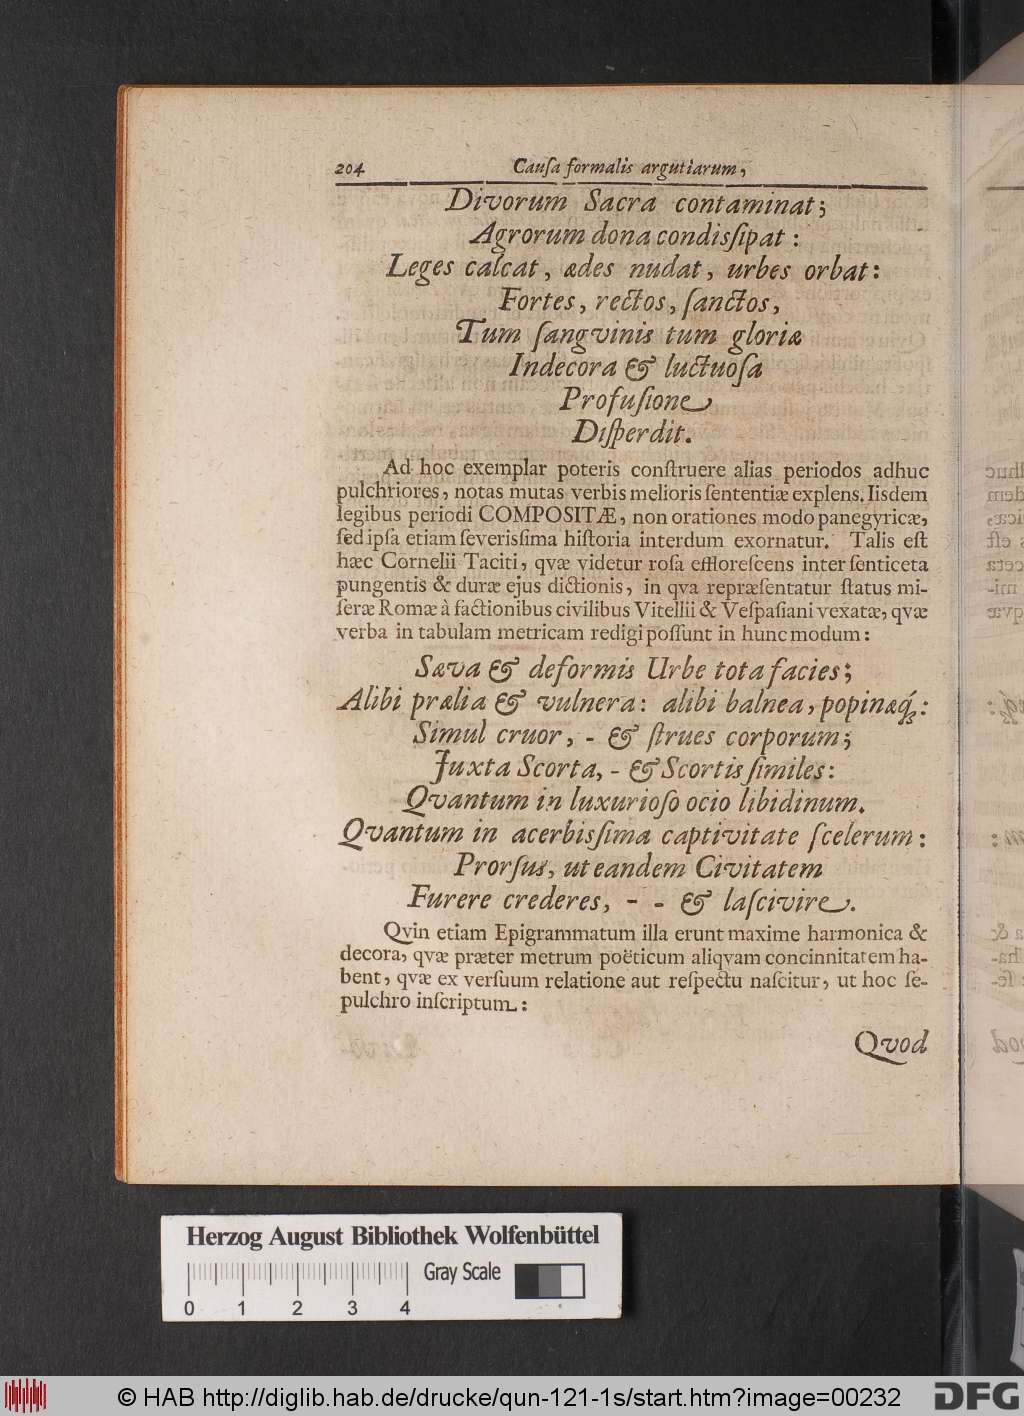 204 Cauſa formalis argutiarum,
Divorum Sacra contaminat;
Agrorum dona condisſipat:
Leges calcat, ædes nudat, urbes orbat:
Fortes, rectos, ſanctos,
Tum ſangvinis tum gloriæ
Indecora & luctuoſa
Profuſione
Diſperdit.
Ad hoc exemplar poteris conſtruere alias periodos adhuc
pulchriores, notas mutas verbis melioris ſententiæ explens. Iisdem
legibus periodi COMPOSITÆ, non orationes modo panegyricæ,
ſed ipſa etiam ſeverisſima hiſtoria interdum exornatur. Talis eſt
hæc Cornelii Taciti, qvæ videtur roſa effloreſcens inter ſenticeta
pungentis & duræ ejus dictionis, in qva repræſentatur ſtatus mi-
ſeræ Romæ à factionibus civilibus Vitellii & Veſpaſiani vexatæ, qvæ
verba in tabulam metricam redigi poſſunt in hunc modum:
Sæva & deformis Urbe tota facies;
Alibi prælia & vulnera: alibi balnea, popinæq́;:
Simul cruor, - & ſtrues corporum;
Juxta Scorta, - & Scortis ſimiles:
Qvantum in luxurioſo ocio libidinum.
Qvantum in acerbisſima captivitate ſcelerum:
Prorſus, ut eandem Civitatem
Furere crederes, - - & laſcivire.
Qvin etiam Epigrammatum illa erunt maxime harmonica &
decora, qvæ præter metrum poëticum aliqvam concinnitatem ha-
bent, qvæ ex verſuum relatione aut reſpectu naſcitur, ut hoc ſe-
pulchro inſcriptum:
Qvod
Herzog August Bibliothek Wolfenbüttel
Gray Scale
0 1 2 3 4
© HAB http://diglib.hab.de/drucke/qun-121-1s/start.htm?image=00232
DFG